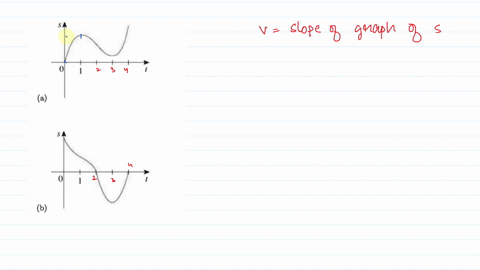 v = slope of graph of s
s
0 1 2 3 4 t
(a)
s
4
0 1 2 3 t
(b)